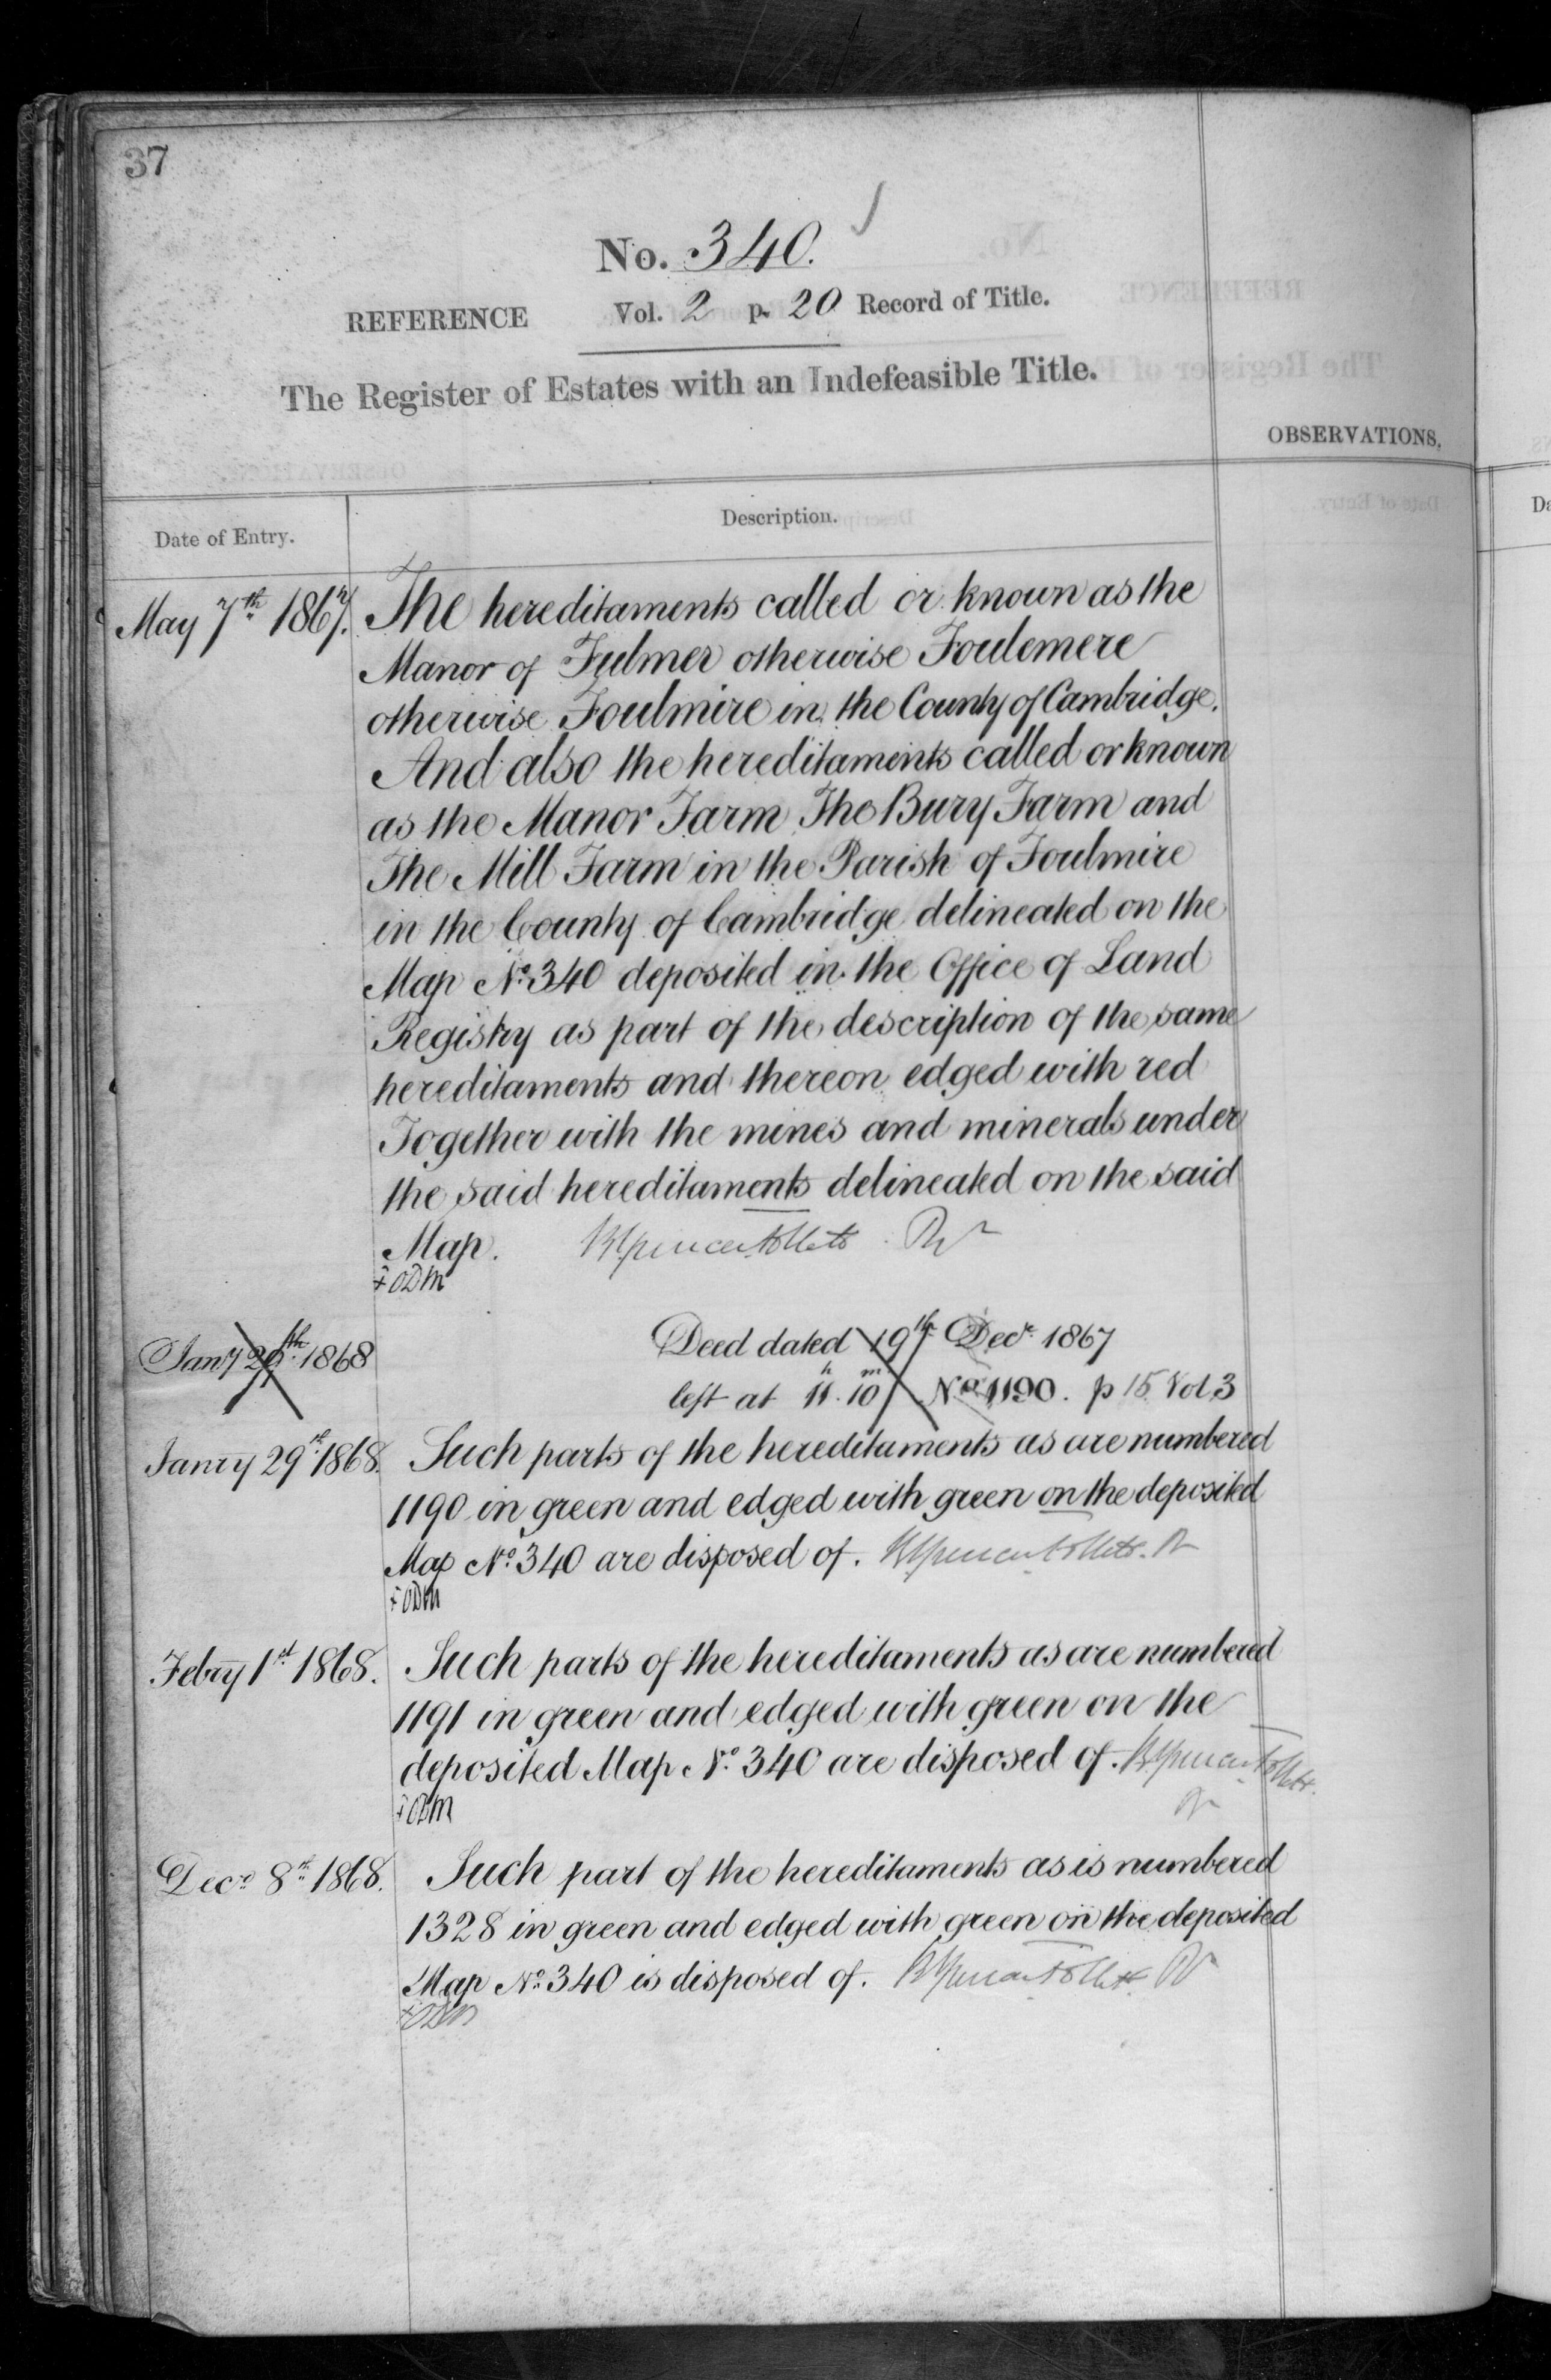 37
No. 340.
REFERENCE Vol. 2 p. 20 Record of Title.
The Register of Estates with an Indefeasible Title.
OBSERVATIONS.
Date of Entry.
Description.
May 7th 1867. The hereditaments called or known as the
Manor of Fulmer otherwise Foulemere
otherwise Foulmire in the County of Cambridge.
And also the hereditaments called or known
as the Manor Farm The Bury Farm and
The Mill Farm in the Parish of Foulmire
in the County of Cambridge delineated on the
Map No. 340 deposited in the Office of Land
Registry as part of the description of the same
hereditaments and thereon edged with red
Together with the mines and minerals under
the said hereditaments delineated on the said
Map.
Jany 29th 1868 Deed dated 19th Decr 1867
left at 11h. 10m No 1190. p 15 Vol 3
Janry 29th 1868. Such parts of the hereditaments as are numbered
1190 in green and edged with green on the deposited
Map No. 340 are disposed of.
Febry 1st 1868. Such parts of the hereditaments as are numbered
1191 in green and edged with green on the
deposited Map No. 340 are disposed of.
Decr 8th 1868. Such part of the hereditaments as is numbered
1328 in green and edged with green on the deposited
Map No. 340 is disposed of.